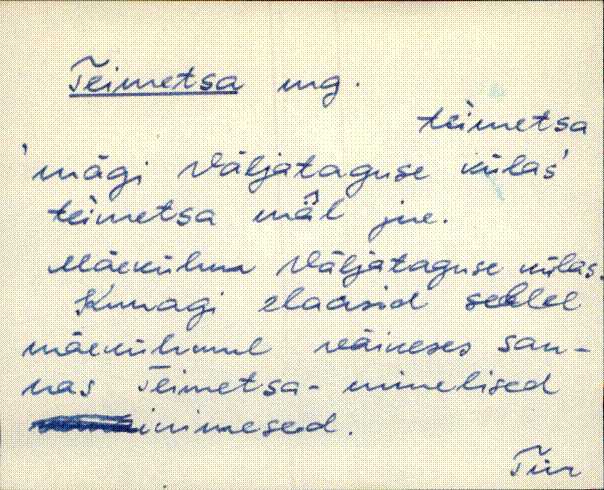 Teimetsa mg.
tèimetsa
'mägi Väljataguse külas'
tèimetsa mä̂l jne.
Mäekühm Väljataguse külas.
Kunagi elasid sellel
mäeühmul väikeses san-
nas Teimetsa-nimelised
inimesed.
Tür